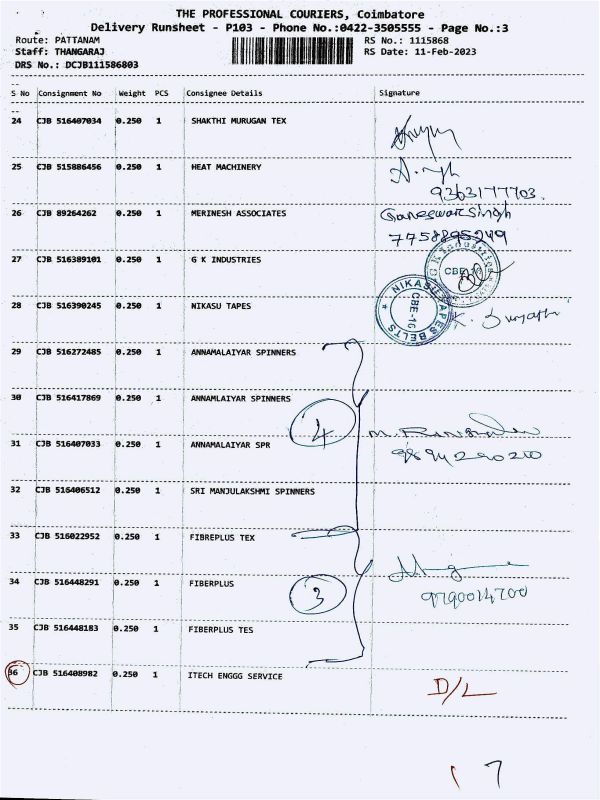 THE PROFESSIONAL COURIERS, Coimbatore
Delivery Runsheet - P103 - Phone No.:0422-3505555 - Page No.:3
Route: PATTANAM
RS No.: 1115868
Staff: THANGARAJ
RS Date: 11-Feb-2023
DRS No.: DCJB111586803
S No Consignment No Weight PCS Consignee Details Signature
24 CJB 516407034 0.250 1 SHAKTHI MURUGAN TEX
25 CJB 515886456 0.250 1 HEAT MACHINERY
9363177703
26 CJB 89264262 0.250 1 MERINESH ASSOCIATES Ganeswar Singh
7758895249
27 CJB 516389101 0.250 1 G K INDUSTRIES
G K Industries
CBE-16
28 CJB 516390245 0.250 1 NIKASU TAPES
NIKASU TAPES BELTS
CBE-16
29 CJB 516272485 0.250 1 ANNAMALAIYAR SPINNERS
30 CJB 516417869 0.250 1 ANNAMLAIYAR SPINNERS
4
31 CJB 516407033 0.250 1 ANNAMALAIYAR SPR
9894290200
32 CJB 516406512 0.250 1 SRI MANJULAKSHMI SPINNERS
33 CJB 516022952 0.250 1 FIBREPLUS TEX
34 CJB 516448291 0.250 1 FIBERPLUS
3
9790014700
35 CJB 516448183 0.250 1 FIBERPLUS TES
36 CJB 516408982 0.250 1 ITECH ENGGG SERVICE D/L